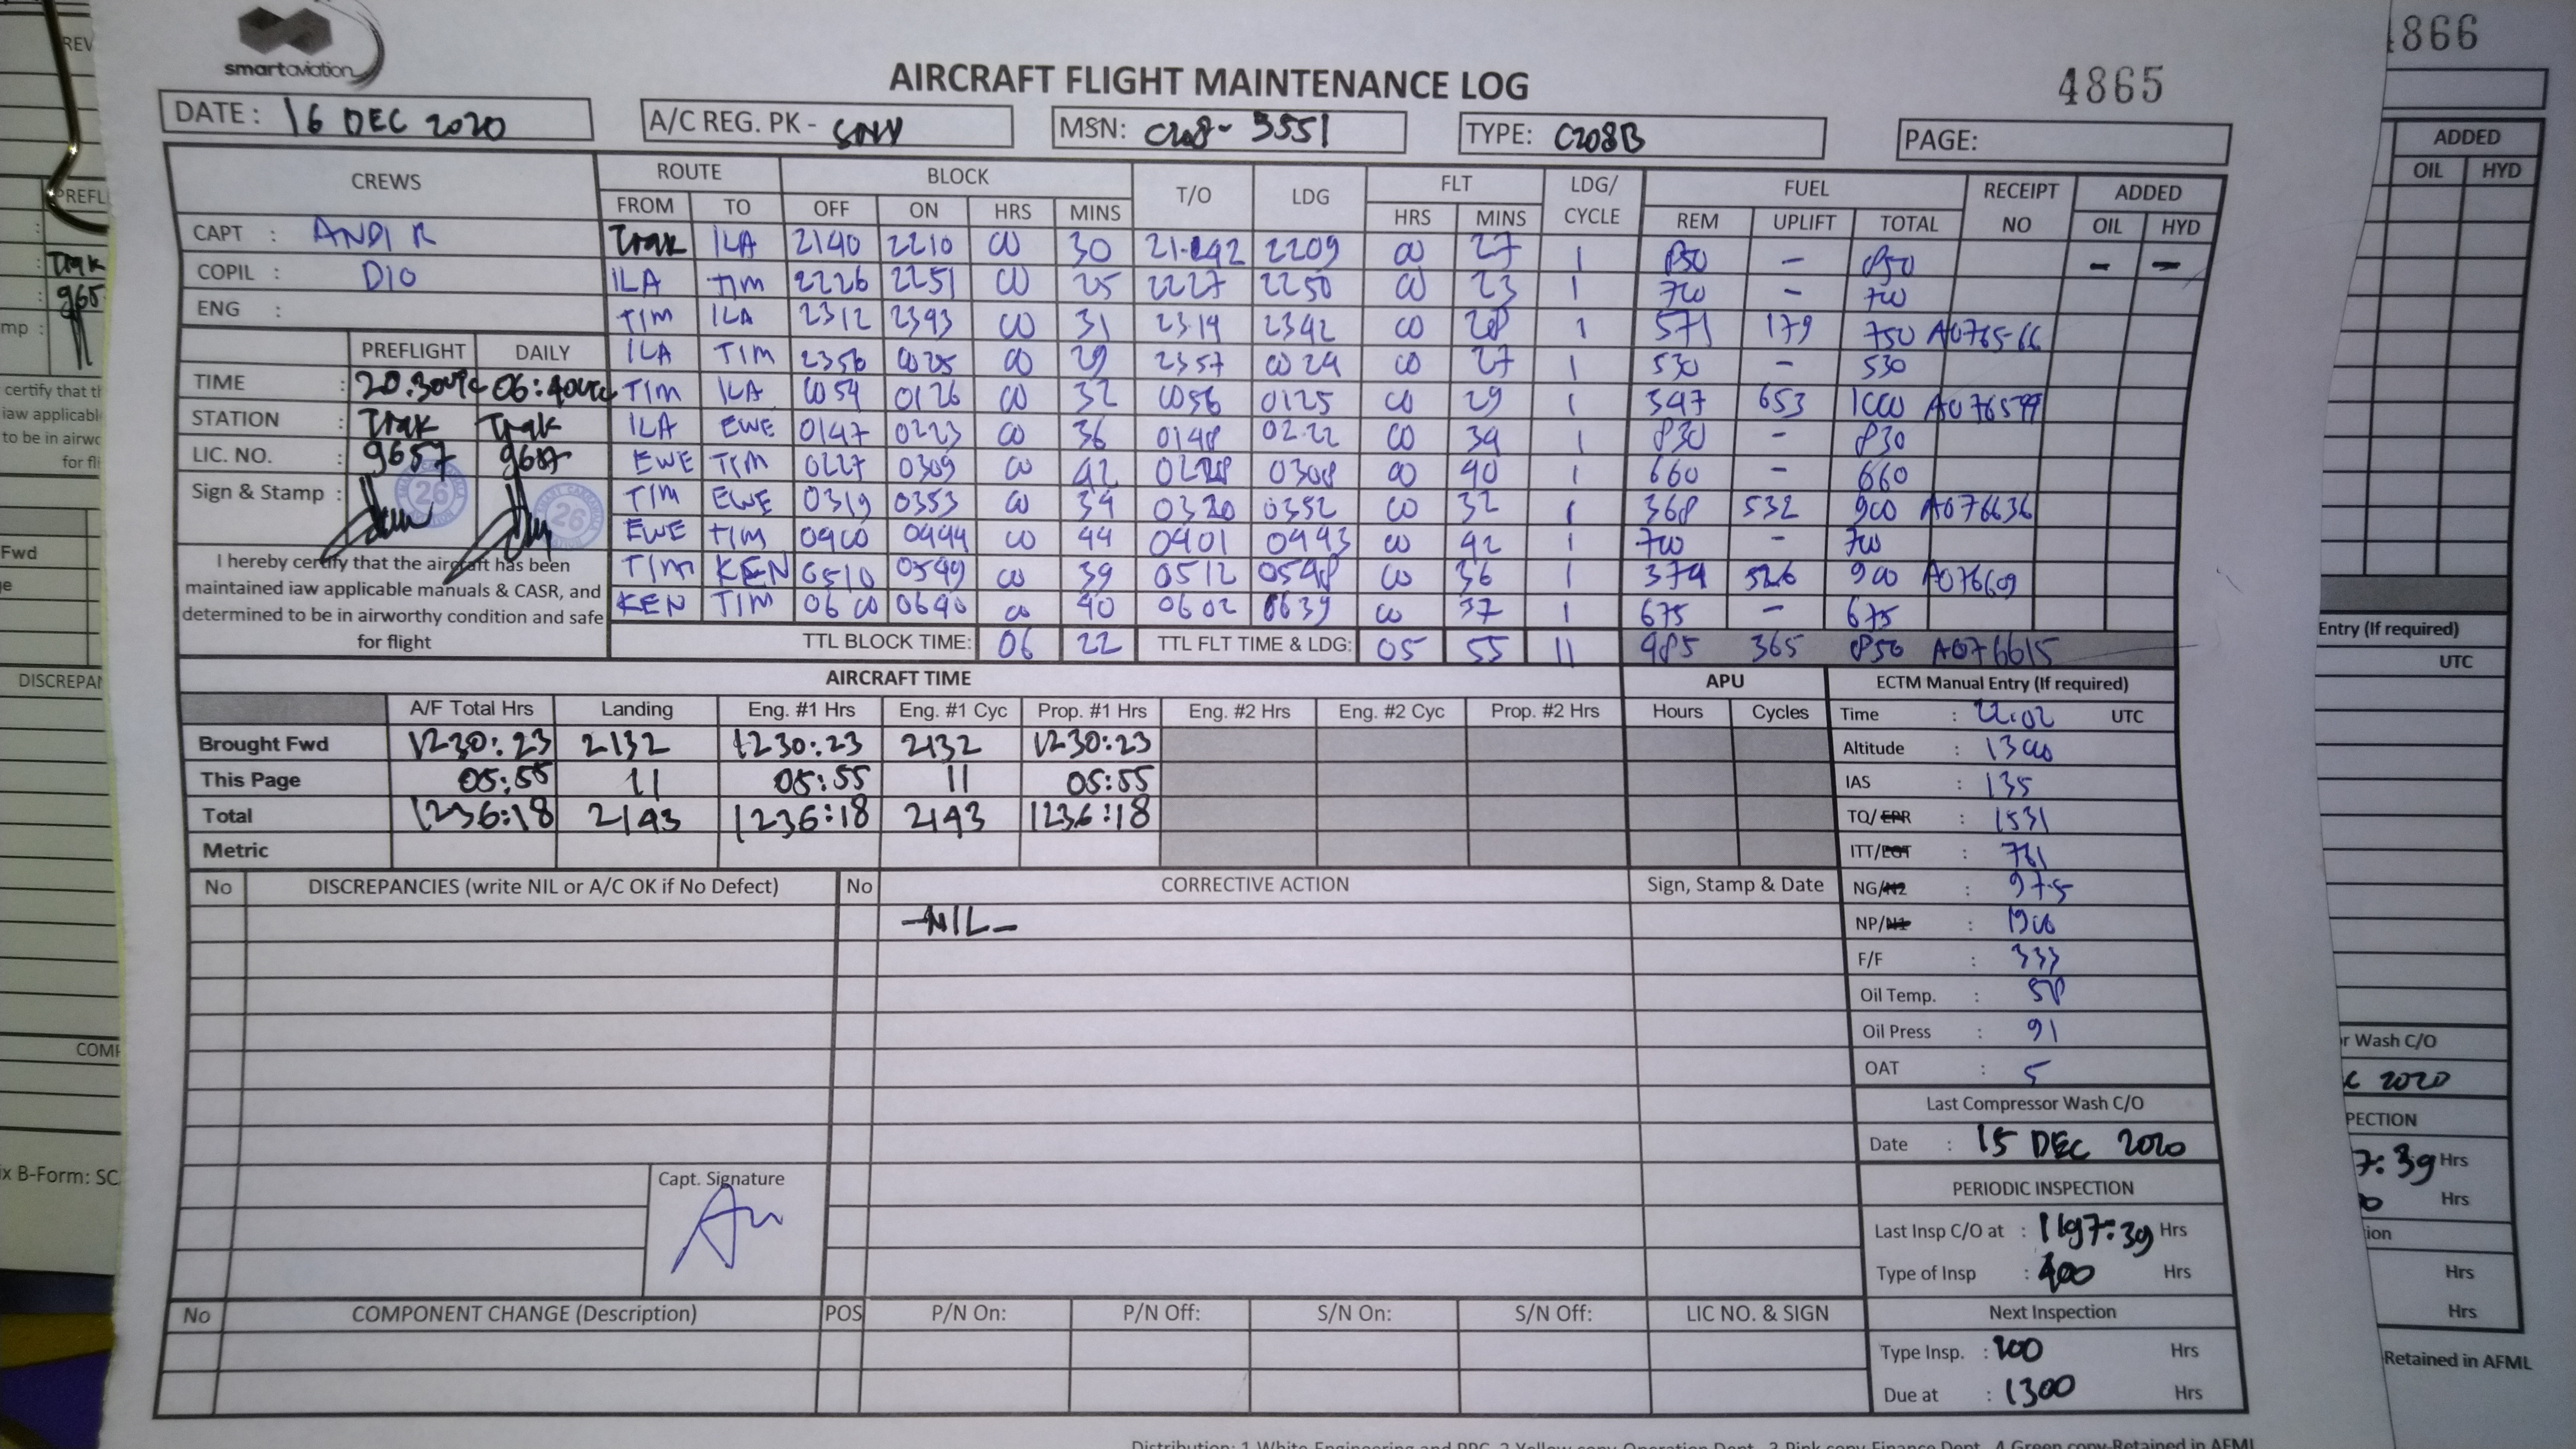 smartaviation
AIRCRAFT FLIGHT MAINTENANCE LOG
4865
4866
DATE: 16 DEC 2020 A/C REG. PK - SNV MSN: C208-5551 TYPE: C208B PAGE:
CREWS ROUTE BLOCK T/O LDG FLT LDG/CYCLE FUEL RECEIPT NO ADDED
FROM TO OFF ON HRS MINS HRS MINS REM UPLIFT TOTAL OIL HYD
CAPT : ANDI R
COPIL : DIO
ENG :
Trak ILA 2140 2210 00 30 21-42 2209 00 27 1 850 - 850 - -
ILA TIM 2226 2251 00 25 2227 2250 00 23 1 700 - 700
TIM ILA 2312 2343 00 31 2314 2342 00 28 1 571 179 750 A0765-66
ILA TIM 2356 0025 00 29 2357 0024 00 27 1 530 - 530
TIM ILA 0054 0126 00 32 0056 0125 00 29 1 347 653 1000 A076599
ILA EWE 0147 0223 00 36 0148 02.22 00 34 1 830 - 830
EWE TIM 0227 0309 00 42 0228 0308 00 40 1 660 - 660
TIM EWE 0319 0353 00 34 0320 0352 00 32 1 368 532 900 A076636
EWE TIM 0400 0444 00 44 0401 0443 00 42 1 700 - 700
TIM KEN 0510 0549 00 39 0512 0548 00 36 1 374 526 900 A076609
KEN TIM 0600 0640 00 40 0602 0639 00 37 1 675 - 675
TTL BLOCK TIME: 06 22 TTL FLT TIME & LDG: 05 55 11 485 365 850 A076615
PREFLIGHT DAILY
TIME : 20.30utc 06:40utc
STATION : Trak Trak
LIC. NO. : 9657 9657
Sign & Stamp : 26 26
I hereby certify that the aircraft has been
maintained iaw applicable manuals & CASR, and
determined to be in airworthy condition and safe
for flight
AIRCRAFT TIME APU
A/F Total Hrs Landing Eng. #1 Hrs Eng. #1 Cyc Prop. #1 Hrs Eng. #2 Hrs Eng. #2 Cyc Prop. #2 Hrs Hours Cycles
Brought Fwd 1230:23 2132 1230:23 2132 1230:23
This Page 05:55 11 05:55 11 05:55
Total 1236:18 2143 1236:18 2143 1236:18
Metric
ECTM Manual Entry (If required)
Time : 22:02 UTC
Altitude : 1300
IAS : 135
TQ/EPR : 1531
ITT/EGT : 761
NG/N2 : 97.5
NP/N1 : 1900
F/F : 333
Oil Temp. : 58
Oil Press : 91
OAT : 5
Last Compressor Wash C/O
Date : 15 DEC 2020
PERIODIC INSPECTION
Last Insp C/O at : 1197:39 Hrs
Type of Insp : 400 Hrs
Next Inspection
Type Insp. : 200 Hrs
Due at : 1300 Hrs
No DISCREPANCIES (write NIL or A/C OK if No Defect) No CORRECTIVE ACTION Sign, Stamp & Date
-NIL-
Capt. Signature
No COMPONENT CHANGE (Description) POS P/N On: P/N Off: S/N On: S/N Off: LIC NO. & SIGN
ADDED
OIL HYD
Entry (If required)
UTC
r Wash C/O
C 2020
PECTION
7:39 Hrs
Hrs
ion
Hrs
Hrs
Retained in AFML
REV
PREFL
Trak
965
mp :
certify that th
iaw applicabl
to be in airwo
for fli
Fwd
e
DISCREPAN
COMP
ix B-Form: SC
Distribution: 1 White Engineering and PPC, 2 Yellow copy Operation Dept, 3 Pink copy Finance Dept, 4 Green copy-Retained in AFML